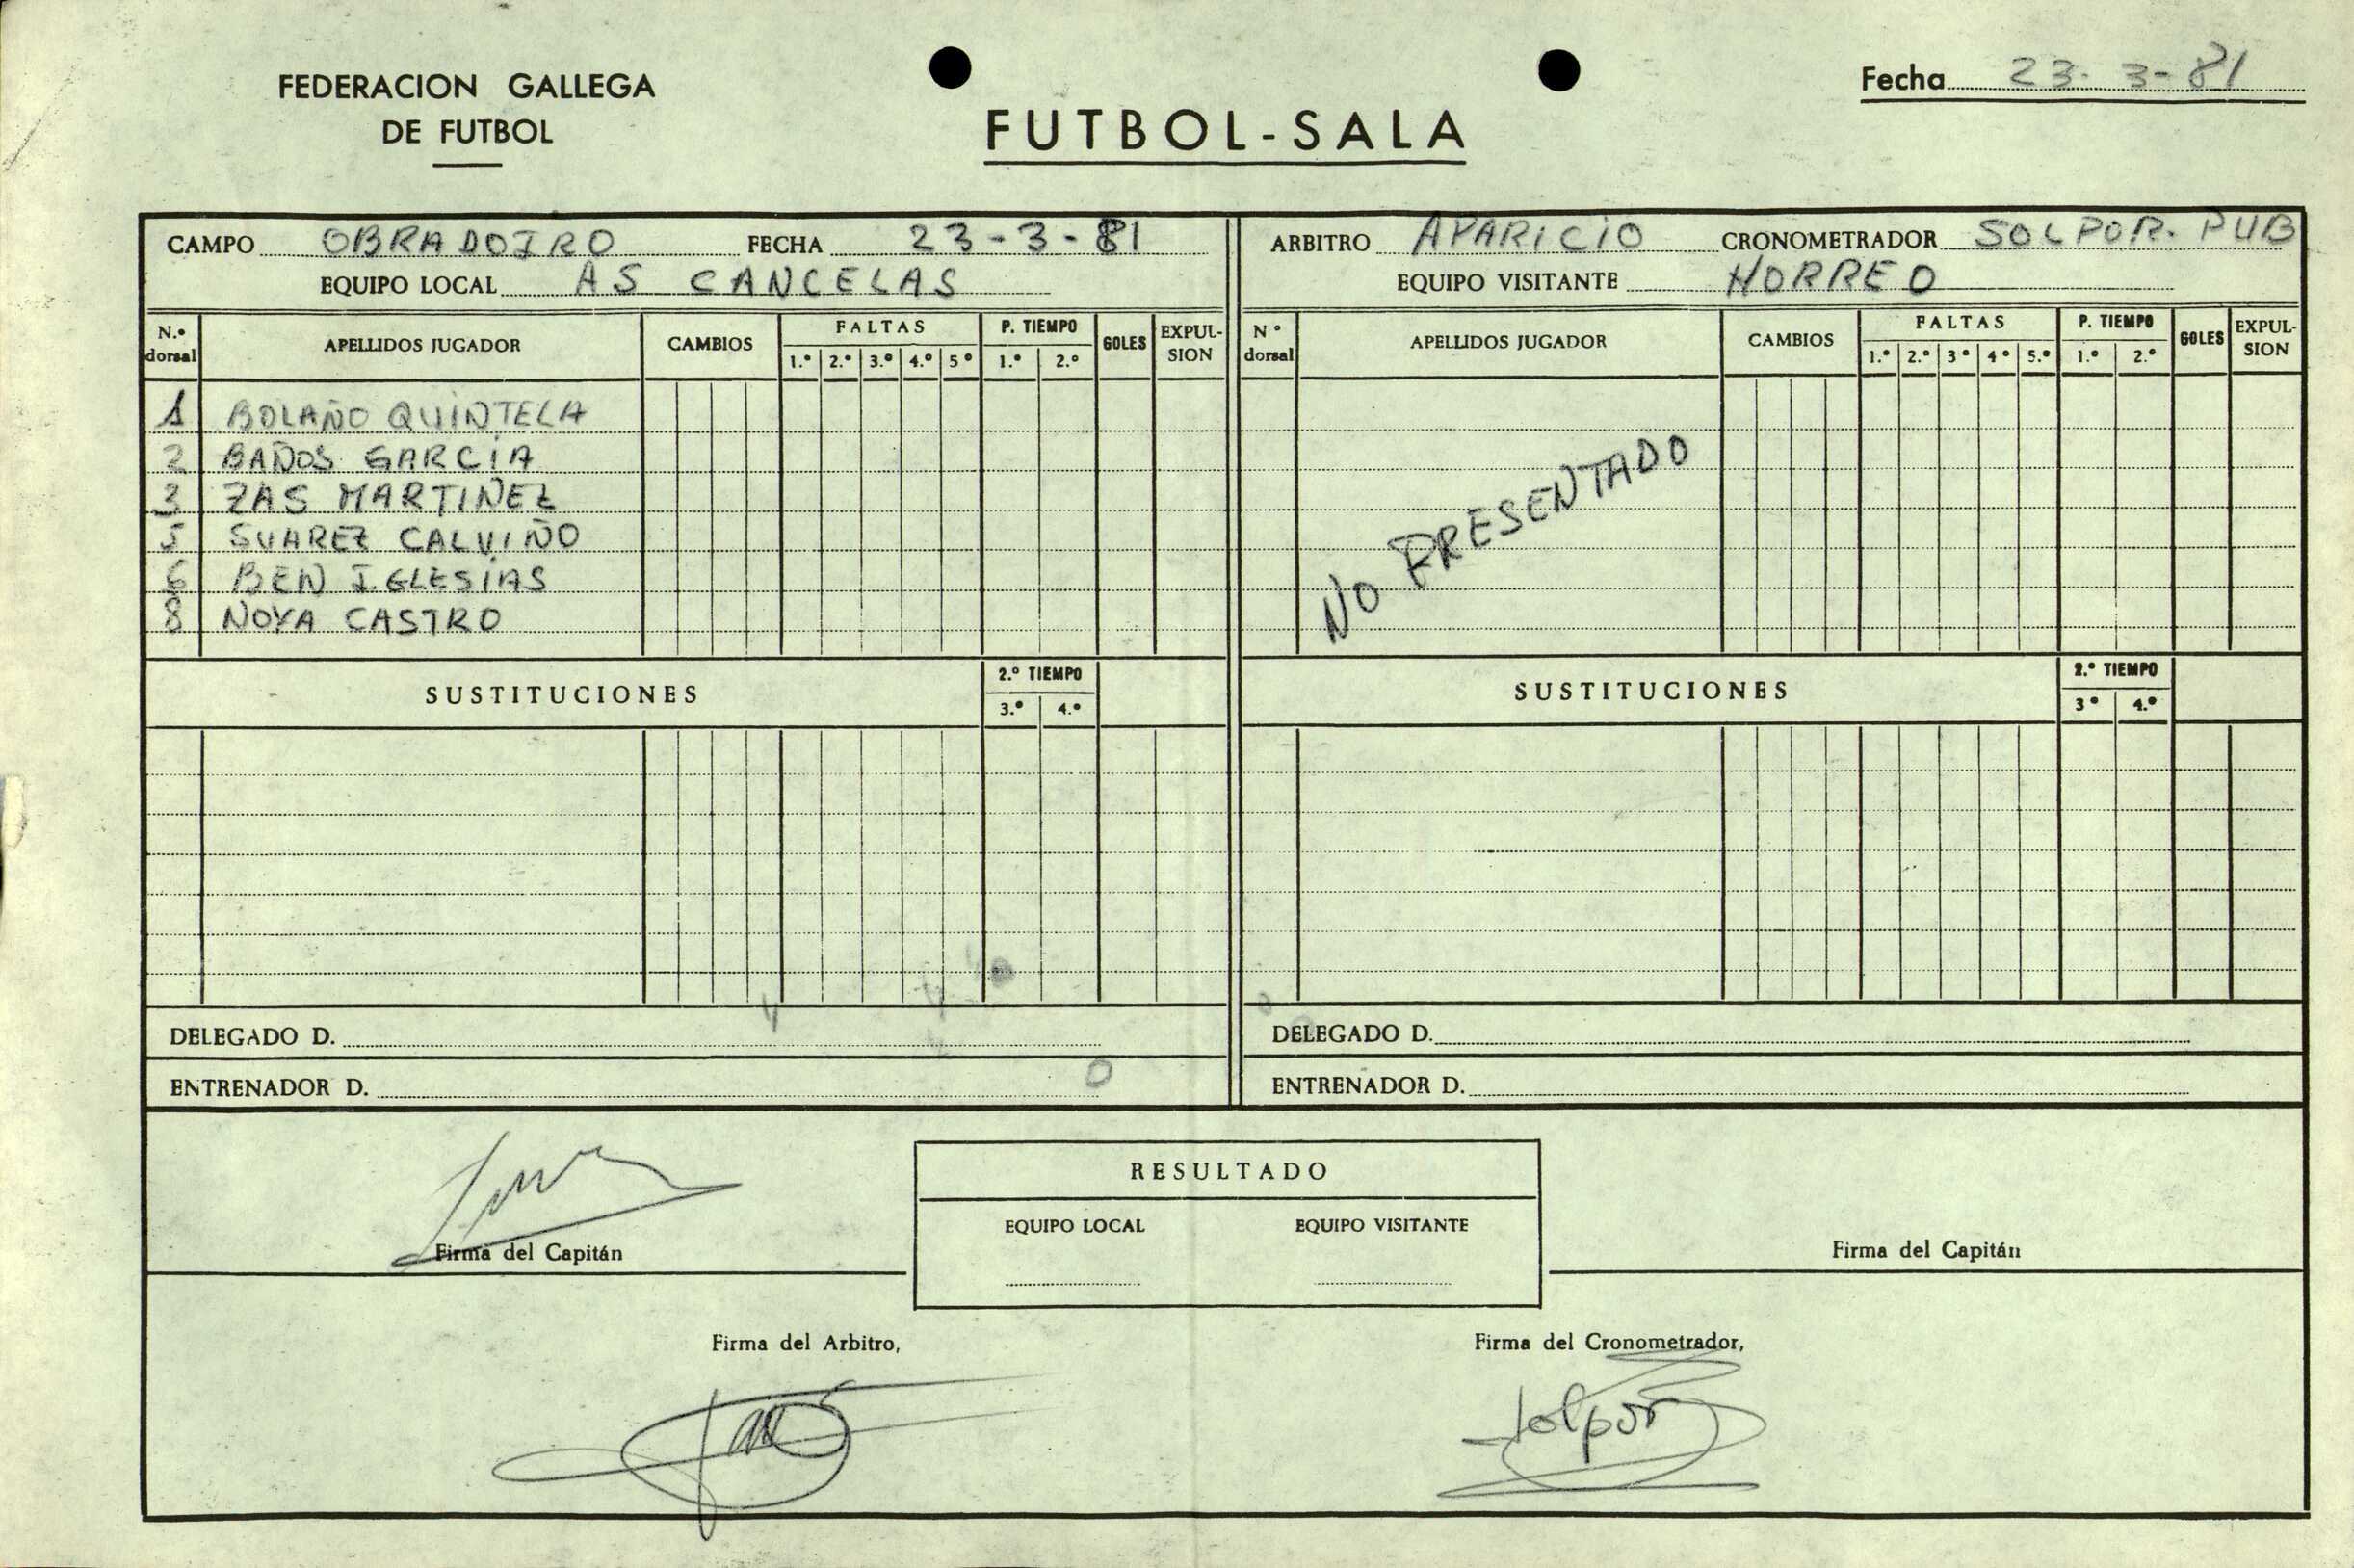 FEDERACION GALLEGA
DE FUTBOL
FUTBOL-SALA
Fecha 23-3-81
CAMPO OBRADOIRO FECHA 23-3-81
EQUIPO LOCAL AS CANCELAS
ARBITRO APARICIO CRONOMETRADOR SOLPOR. PUB
EQUIPO VISITANTE HORREO
N.º dorsal APELLIDOS JUGADOR CAMBIOS FALTAS 1.º 2.º 3.º 4.º 5º P. TIEMPO 1.º 2.º GOLES EXPULSION
N º dorsal APELLIDOS JUGADOR CAMBIOS FALTAS 1.º 2.º 3º 4º 5.º P. TIEMPO 1.º 2.º GOLES EXPULSION
1 BOLAÑO QUINTELA
2 BAÑOS GARCIA
3 ZAS MARTINEZ
5 SUAREZ CALVIÑO
6 BEN IGLESIAS
8 NOYA CASTRO
NO PRESENTADO
SUSTITUCIONES 2.º TIEMPO 3.º 4.º
SUSTITUCIONES 2.º TIEMPO 3º 4.º
DELEGADO D.
ENTRENADOR D.
DELEGADO D.
ENTRENADOR D.
Firma del Capitán
RESULTADO
EQUIPO LOCAL EQUIPO VISITANTE
Firma del Capitán
Firma del Arbitro,
Firma del Cronometrador,
Solpor